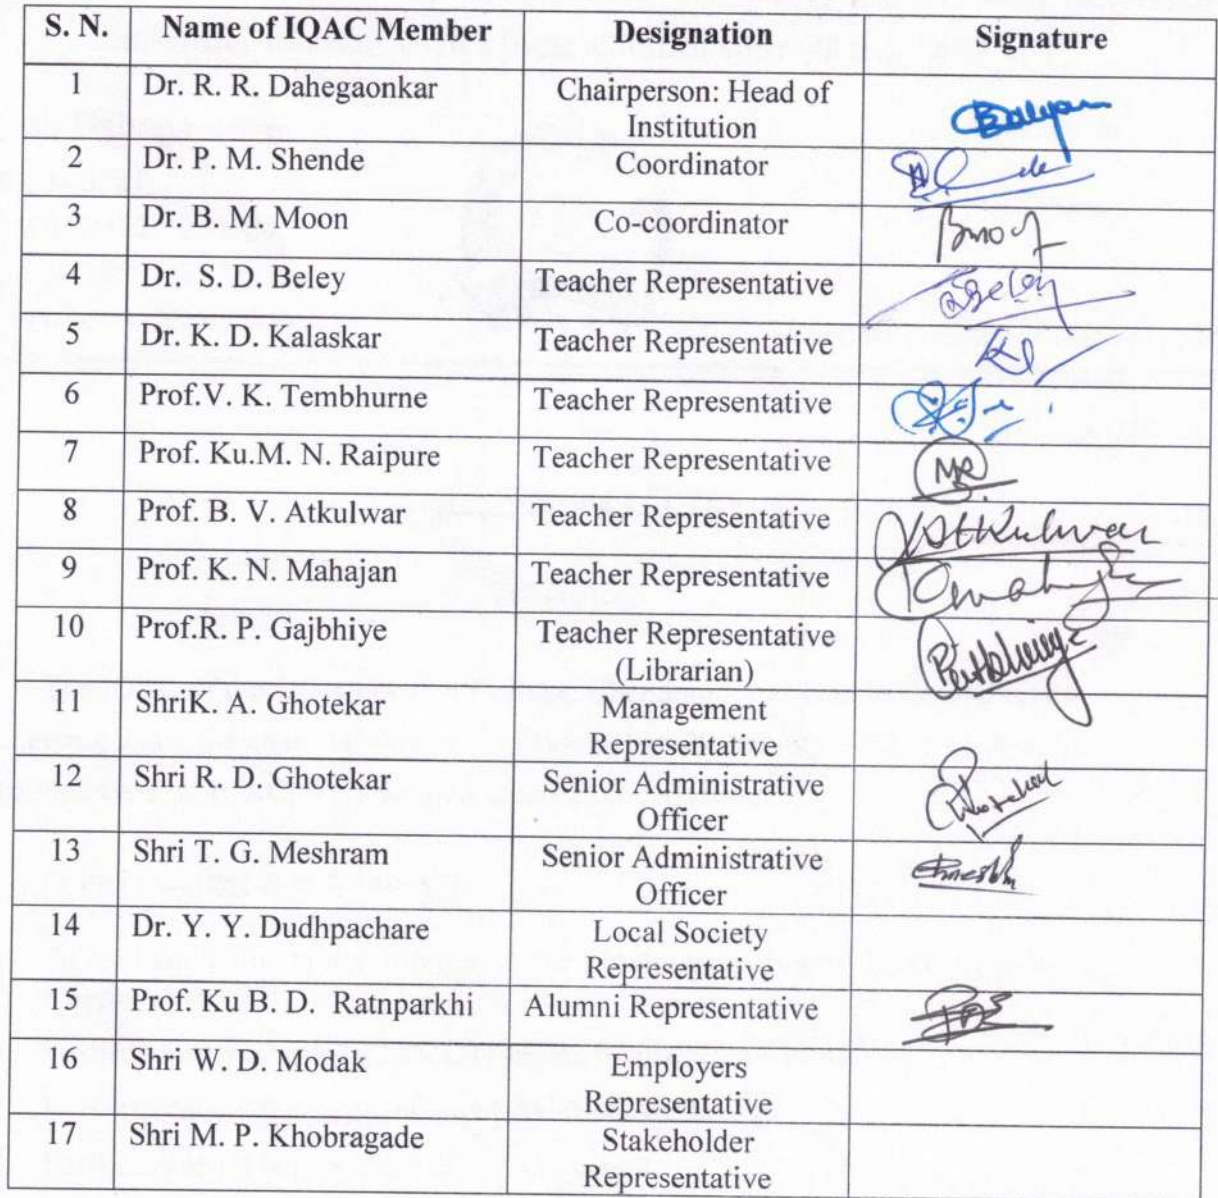 S. N. Name of IQAC Member Designation Signature
1 Dr. R. R. Dahegaonkar Chairperson: Head of
Institution
2 Dr. P. M. Shende Coordinator
3 Dr. B. M. Moon Co-coordinator
4 Dr. S. D. Beley Teacher Representative
5 Dr. K. D. Kalaskar Teacher Representative
6 Prof.V. K. Tembhurne Teacher Representative
7 Prof. Ku.M. N. Raipure Teacher Representative
8 Prof. B. V. Atkulwar Teacher Representative
9 Prof. K. N. Mahajan Teacher Representative
10 Prof.R. P. Gajbhiye Teacher Representative
(Librarian)
11 ShriK. A. Ghotekar Management
Representative
12 Shri R. D. Ghotekar Senior Administrative
Officer
13 Shri T. G. Meshram Senior Administrative
Officer
14 Dr. Y. Y. Dudhpachare Local Society
Representative
15 Prof. Ku B. D. Ratnparkhi Alumni Representative
16 Shri W. D. Modak Employers
Representative
17 Shri M. P. Khobragade Stakeholder
Representative